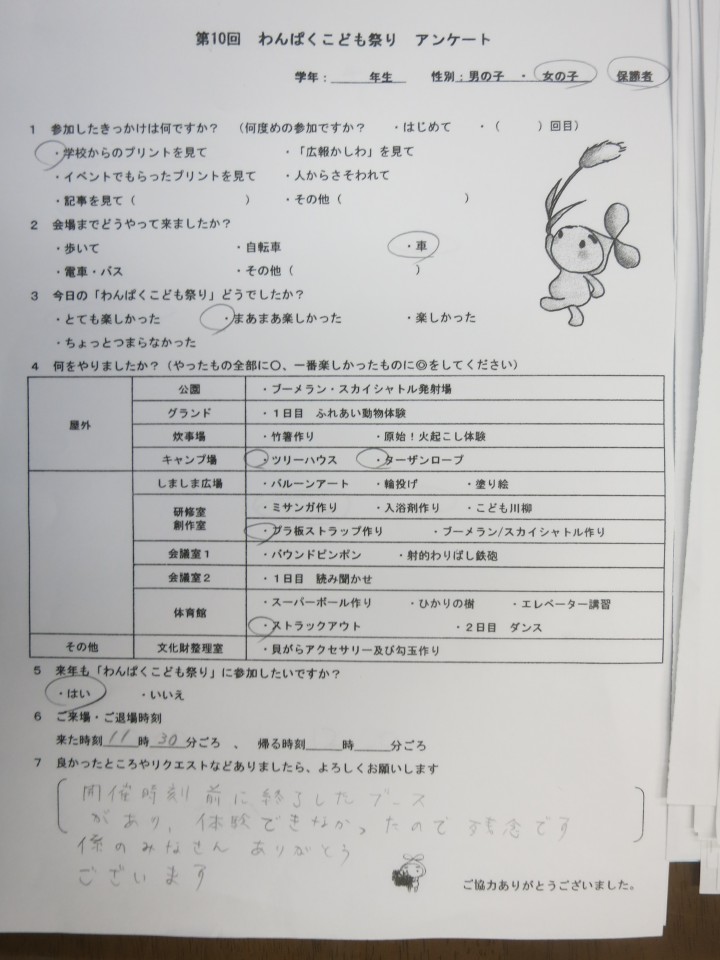 第10回　わんぱくこども祭り　アンケート
学年：　　　年生　　性別：男の子　・　女の子　　保護者
1　参加したきっかけは何ですか？　（何度めの参加ですか？　・はじめて　・（　　）回目）
・学校からのプリントを見て　・「広報かしわ」を見て
・イベントでもらったプリントを見て　・人からさそわれて
・記事を見て（　　　　）　・その他（　　　　）
2　会場までどうやって来ましたか？
・歩いて　・自転車　・車
・電車・バス　・その他（　　　　）
3　今日の「わんぱくこども祭り」どうでしたか？
・とても楽しかった　・まあまあ楽しかった　・楽しかった
・ちょっとつまらなかった
4　何をやりましたか？（やったもの全部に○、一番楽しかったものに◎をしてください）
屋外
公園　・ブーメラン・スカイシャトル発射場
グランド　・1日目　ふれあい動物体験
炊事場　・竹箸作り　・原始！火起こし体験
キャンプ場　・ツリーハウス　・ターザンロープ
しましま広場　・バルーンアート　・輪投げ　・塗り絵
研修室
創作室
・ミサンガ作り　・入浴剤作り　・こども川柳
・プラ板ストラップ作り　・ブーメラン/スカイシャトル作り
会議室1　・バウンドピンポン　・射的わりばし鉄砲
会議室2　・1日目　読み聞かせ
体育館
・スーパーボール作り　・ひかりの樹　・エレベーター講習
・ストラックアウト　・2日目　ダンス
その他　文化財整理室　・貝がらアクセサリー及び勾玉作り
5　来年も「わんぱくこども祭り」に参加したいですか？
・はい　・いいえ
6　ご来場・ご退場時刻
来た時刻 11 時 30 分ごろ　、　帰る時刻　　時　　分ごろ
7　良かったところやリクエストなどありましたら、よろしくお願いします
開催時刻前に終了したブース
があり、体験できなかったので残念です
係のみなさん ありがとう
ございます
ご協力ありがとうございました。